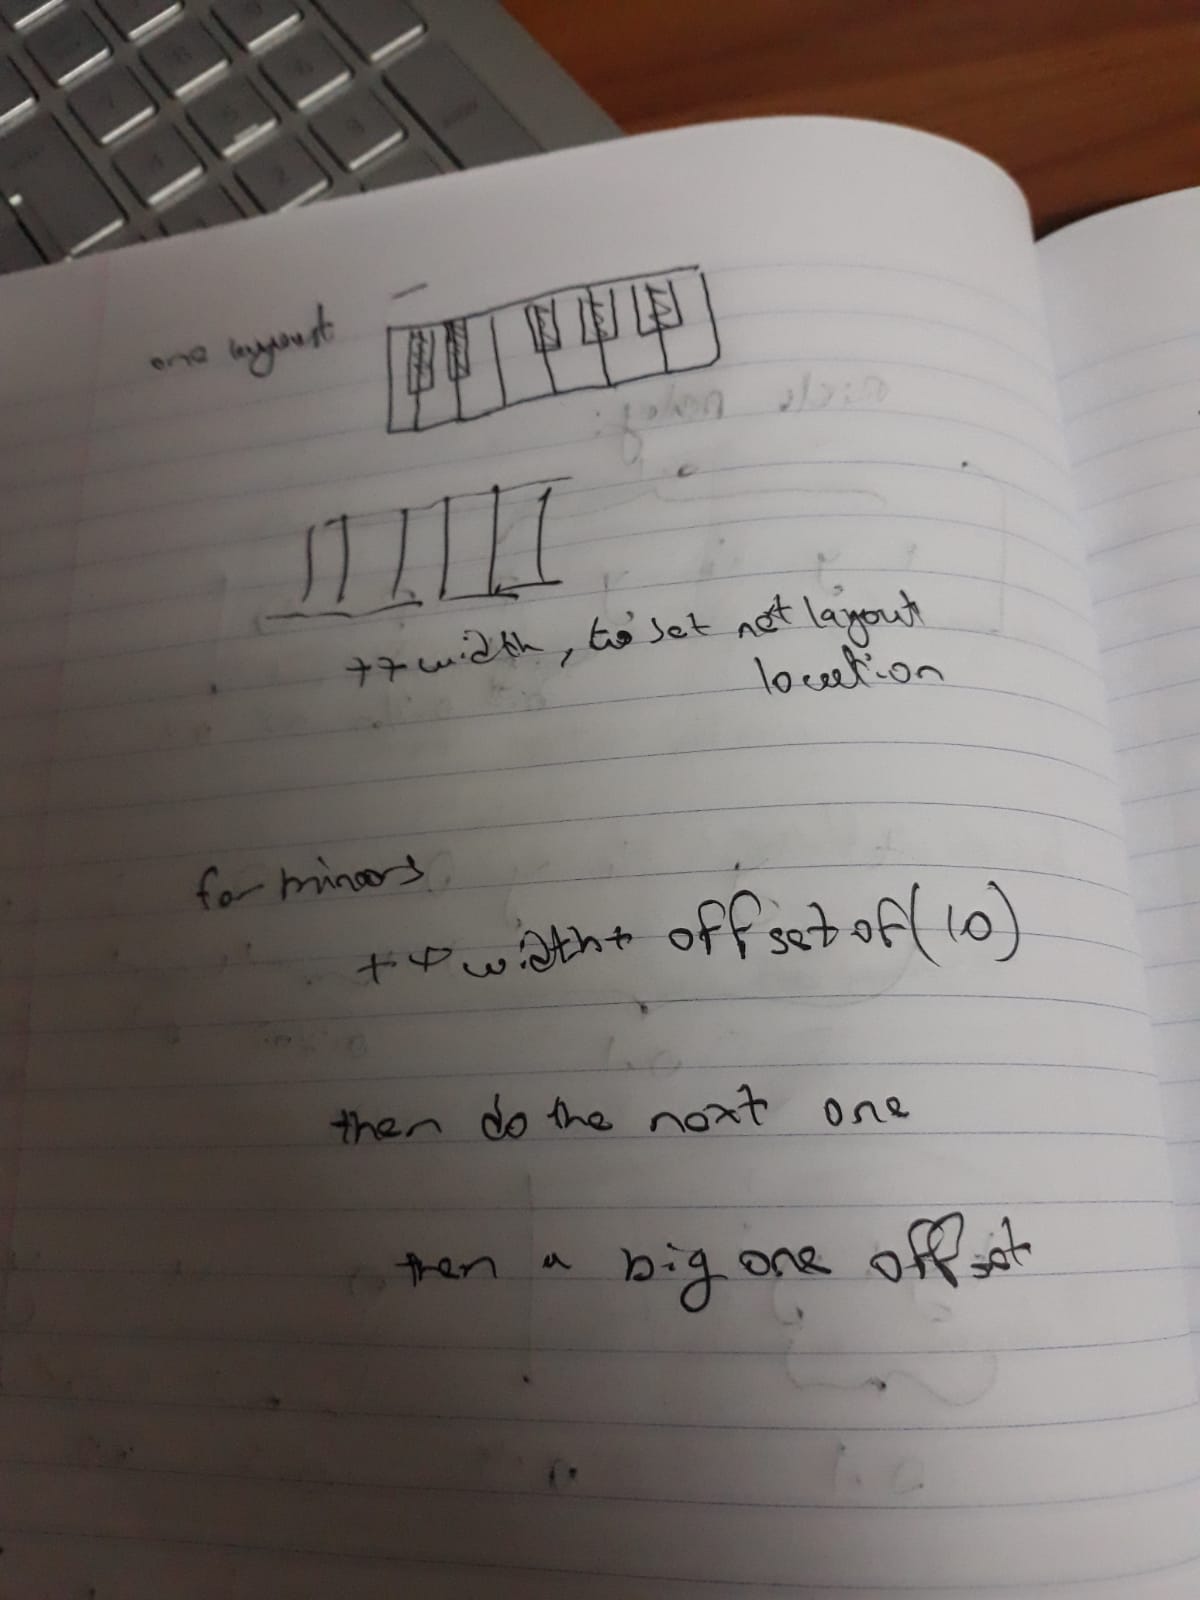 one layout
++width, to set net layout
location
for minors
++width+ offset of(10)
then do the next one
then a big one offset